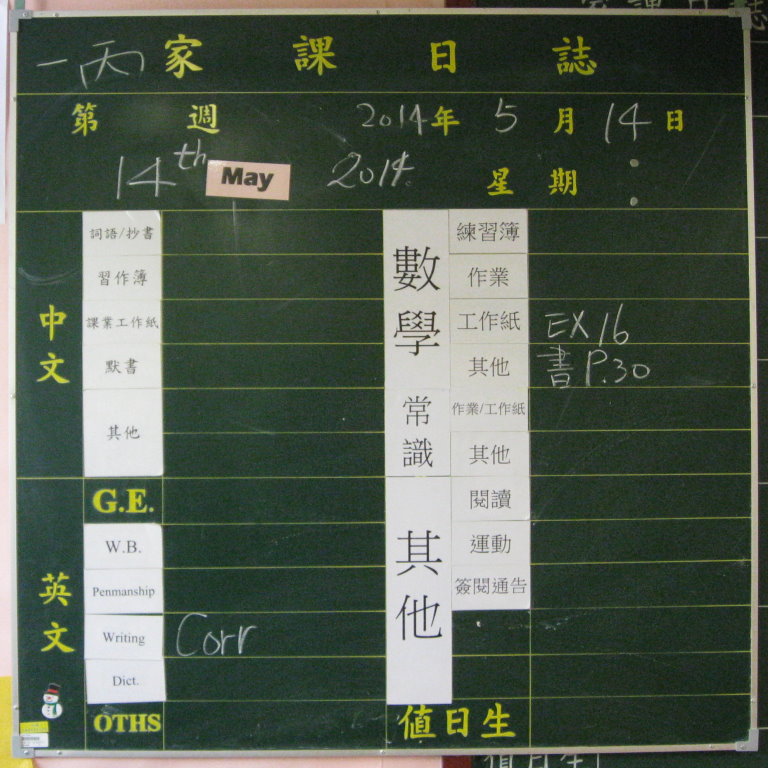 一丙 家課日誌
第 週 2014年 5月 14日
14th May 2014 星期:
中文
詞語/抄書
習作簿
課業工作紙
默書
其他
英文
G.E.
W.B.
Penmanship
Writing Corr
Dict.
OTHS
數學
練習簿
作業
工作紙 EX 16
其他 書 P.30
常識
作業/工作紙
其他
其他
閱讀
運動
簽閱通告
值日生